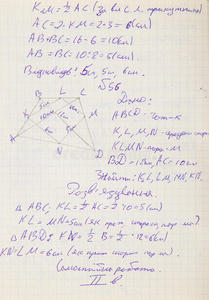 KM = ½ AC (за вл. с. л. трикутника)
AC = 2·KM = 2·3 = 6(см)
AB + BC = 16 - 6 = 10(см)
AB = BC = 10 : 2 = 5(см)
Відповідь: 5см, 5см, 6см.
№56
B L C
K M
A N D
Дано:
ABCD - чот-к
K, L, M, N - середини сторін
KLMN - пар-м
BD = 12см, AC = 10см
Знайти: KL, LM, MN, KN.
Розв'язування
△ ABC, KL = ½ AC = ½·10 = 5(см)
KL = MN = 5см (як прот. сторони пар-ма)
△ ABD: KN = ½ B = ½·12 = 6(см)
KN = LM = 6см (як прот. сторони пар-ма)
Самостійна робота
II в.